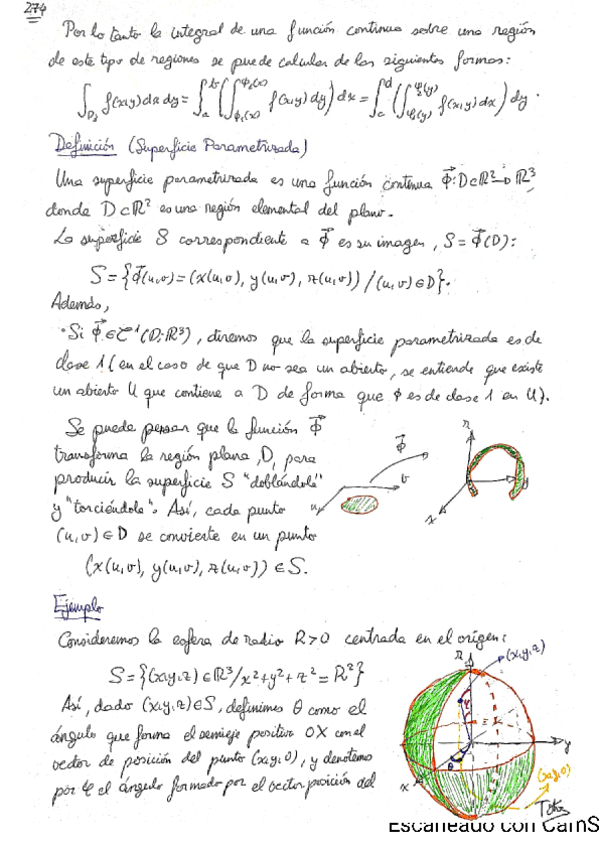 274
Por lo tanto la integral de una función continua sobre una región
de este tipo de regiones se puede calcular de las siguientes formas:
∫_{D₃} f(x,y) dx dy = ∫_a^b (∫_{ϕ₁(x)}^{ϕ₂(x)} f(x,y) dy) dx = ∫_c^d (∫_{φ₁(y)}^{φ₂(y)} f(x,y) dx) dy.
Definición (Superficie Parametrizada)
Una superficie parametrizada es una función continua Φ⃗: D⊂ℝ² → ℝ³
donde D⊂ℝ² es una región elemental del plano.
La superficie S correspondiente a Φ⃗ es su imagen, S = Φ⃗(D):
S = {Φ⃗(u,v) = (x(u,v), y(u,v), z(u,v)) / (u,v) ∈ D}.
Además,
• Si Φ⃗ ∈ C¹(D; ℝ³), diremos que la superficie parametrizada es de
clase 1 (en el caso de que D no sea un abierto, se entiende que existe
un abierto U que contiene a D de forma que ϕ es de clase 1 en U).
Se puede pensar que la función Φ⃗
transforma la región plana, D, para
producir la superficie S "doblándola"
y "torciéndola". Así, cada punto
(u,v) ∈ D se convierte en un punto
(x(u,v), y(u,v), z(u,v)) ∈ S.
Φ⃗
u
v
z
x
y
Ejemplo
Consideremos la esfera de radio R>0 centrada en el origen:
S = {(x,y,z) ∈ ℝ³ / x² + y² + z² = R²}
Así, dado (x,y,z) ∈ S, definimos θ como el
ángulo que forma el semieje positivo OX con el
vector de posición del punto (x,y,0), y denotemos
por φ el ángulo formado por el vector posición del
z
(x,y,z)
φ
θ
y
x
(x,y,0)
Escaneado con CamS